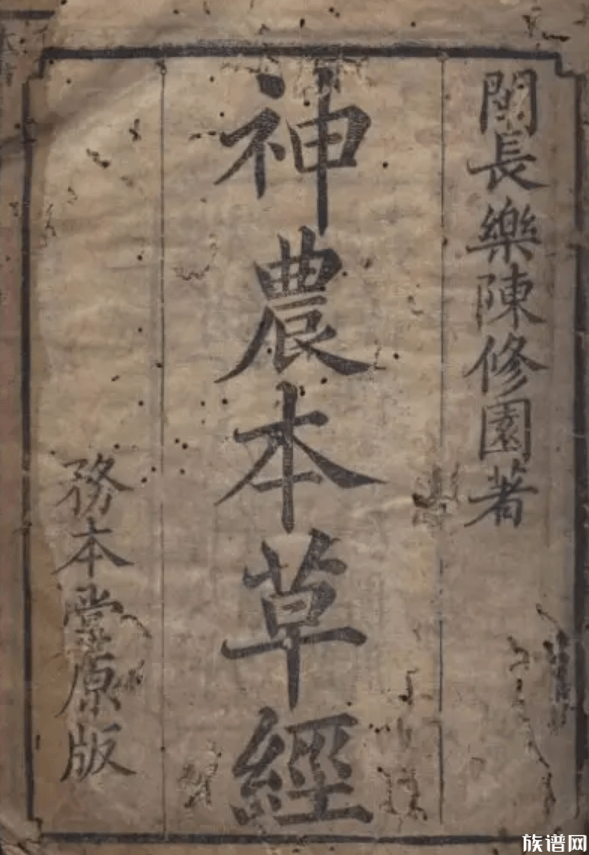 閩長樂陳修園著
神農本草經
務本堂原版
族谱网